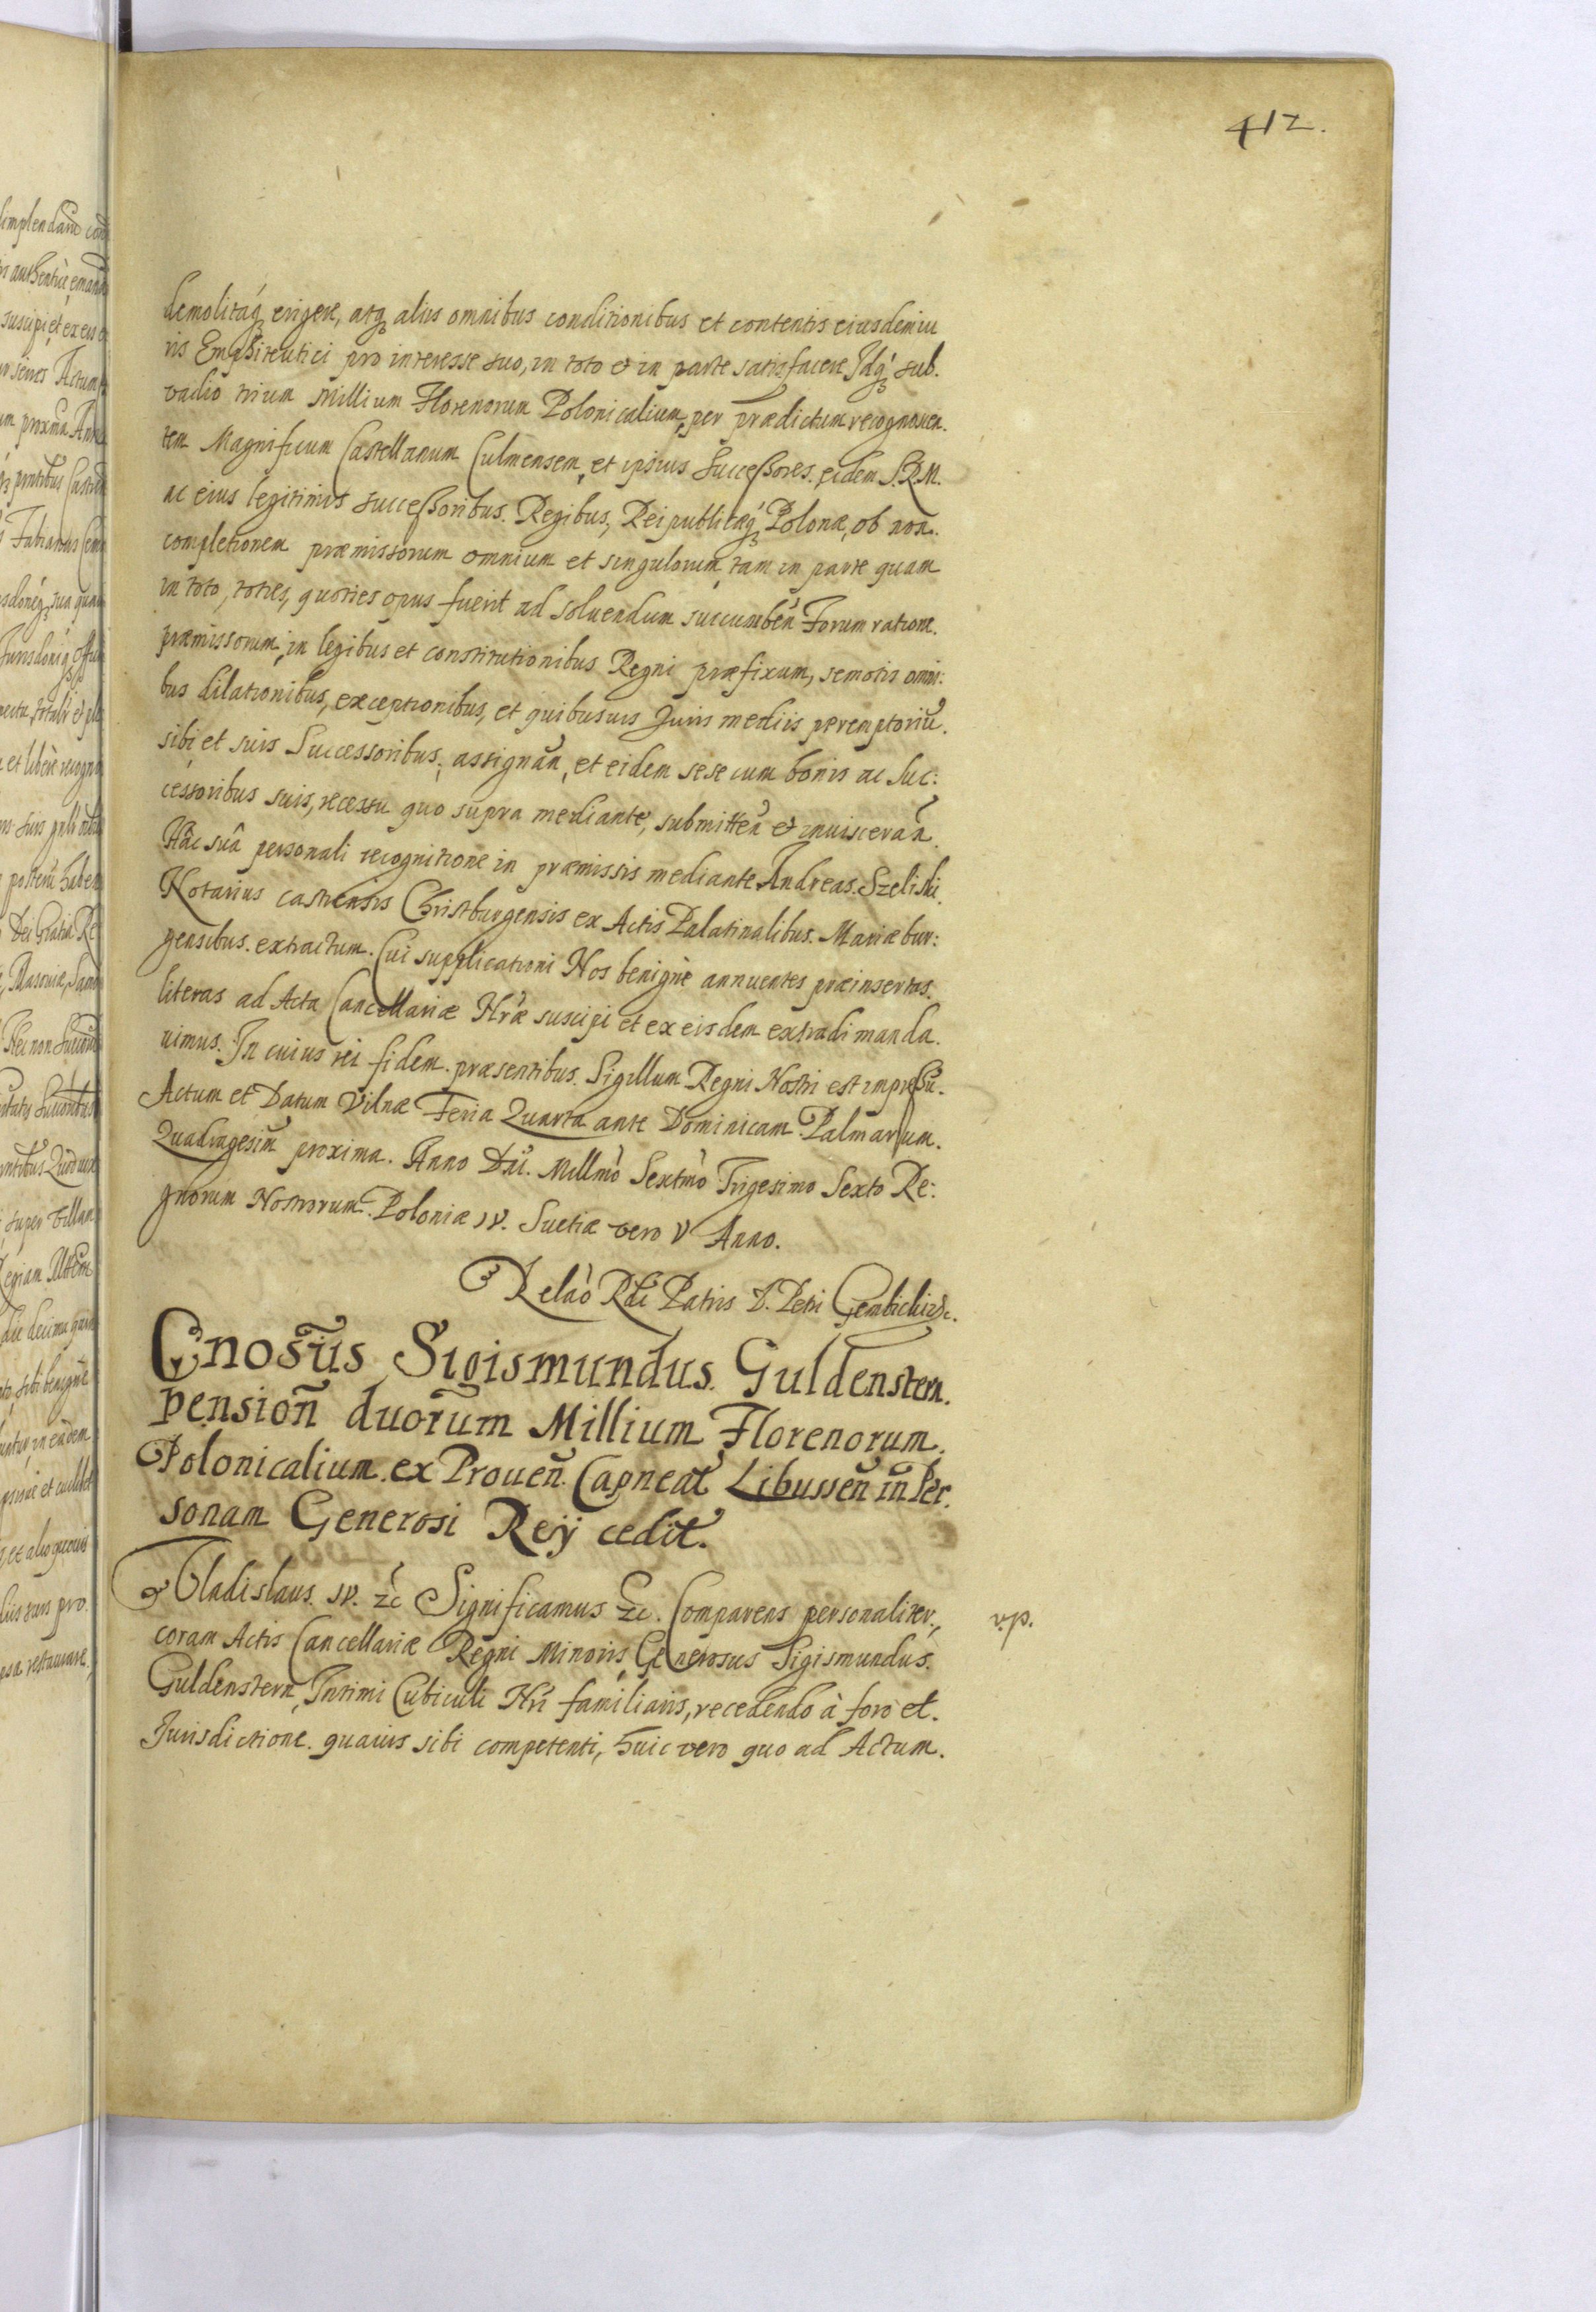 412.
demolitaq́ꝫ erigere, atqꝫ aliis omnibus conditionibus et contentis eiusdem iu
ris Emphiteutici pro interesse suo, in toto et in parte satisfacere Idq́ꝫ sub.
vadio trium Millium Florenorum Polonicalium, per prædictum recognoscen.
tem Magnificum Castellanum Culmensem, et ipsius Successores. eidem S.R.M.
ac eius legitimis successoribus. Regibus, Reipublicæq́ꝫ Polonæ, ob non.
completionem præmissorum omnium et singulorum, tam in parte quam
in toto, toties, quoties opus fuerit ad soluendum succumbeñ Forum ratione.
præmissorum, in legibus et constitutionibus Regni præfixum, semotis omni:
bus dilationibus, exceptionibus, et quibusuis Juris mediis peremptoriũ.
sibi et suis Successoribus, assignañ, et eidem sese cum bonis ac Suc:
cessoribus suis, recessu quo supra mediante, submitteñ et inuiscerañ.
Hâc suâ personali recognitione in præmissis mediante Andreas. Szeliski.
Notarius castrensis Christburgensis ex Actis Palatinalibus. Mariæbur:
gensibus. extractum. Cui supplicationi Nos benignè annuentes præinsertas.
literas ad Acta Cancellariæ Nr̃æ suscipi et ex eisdem extradi manda.
uimus. In cuius rei fidem. præsentibus. Sigillum Regni Nostri est impressũ.
Actum et Datum Vilnæ Feria Quarta ante Dominicam Palmarum.
Quadragesim̃ proxima. Anno Dñi. Millm̃o Sextm̃o Trigesimo Sexto Re:
gnorum Nostrorum. Poloniæ IV. Suetiæ vero V Anno.
Relaõ Rdi Patris D. Petri Gembicki ꝛc.
Gnosũs Sigismundus. Guldenstern.
pensioñ duorum Millium Florenorum.
Polonicalium. ex Proueñ. Capneat̃ Libusseñ in Per.
sonam Generosi Reÿ cedit.
Vladislaus. IV. ꝛc Significamus ꝛc. Comparens personaliter,
coram Actis Cancellariæ Regni Minoris, Generosus Sigismundus.
Guldenstern, Intimi Cubiculi Nr̃i familiaris, recedendo à foro et.
Jurisdictione. quauis sibi competenti, huic vero quo ad Actum.